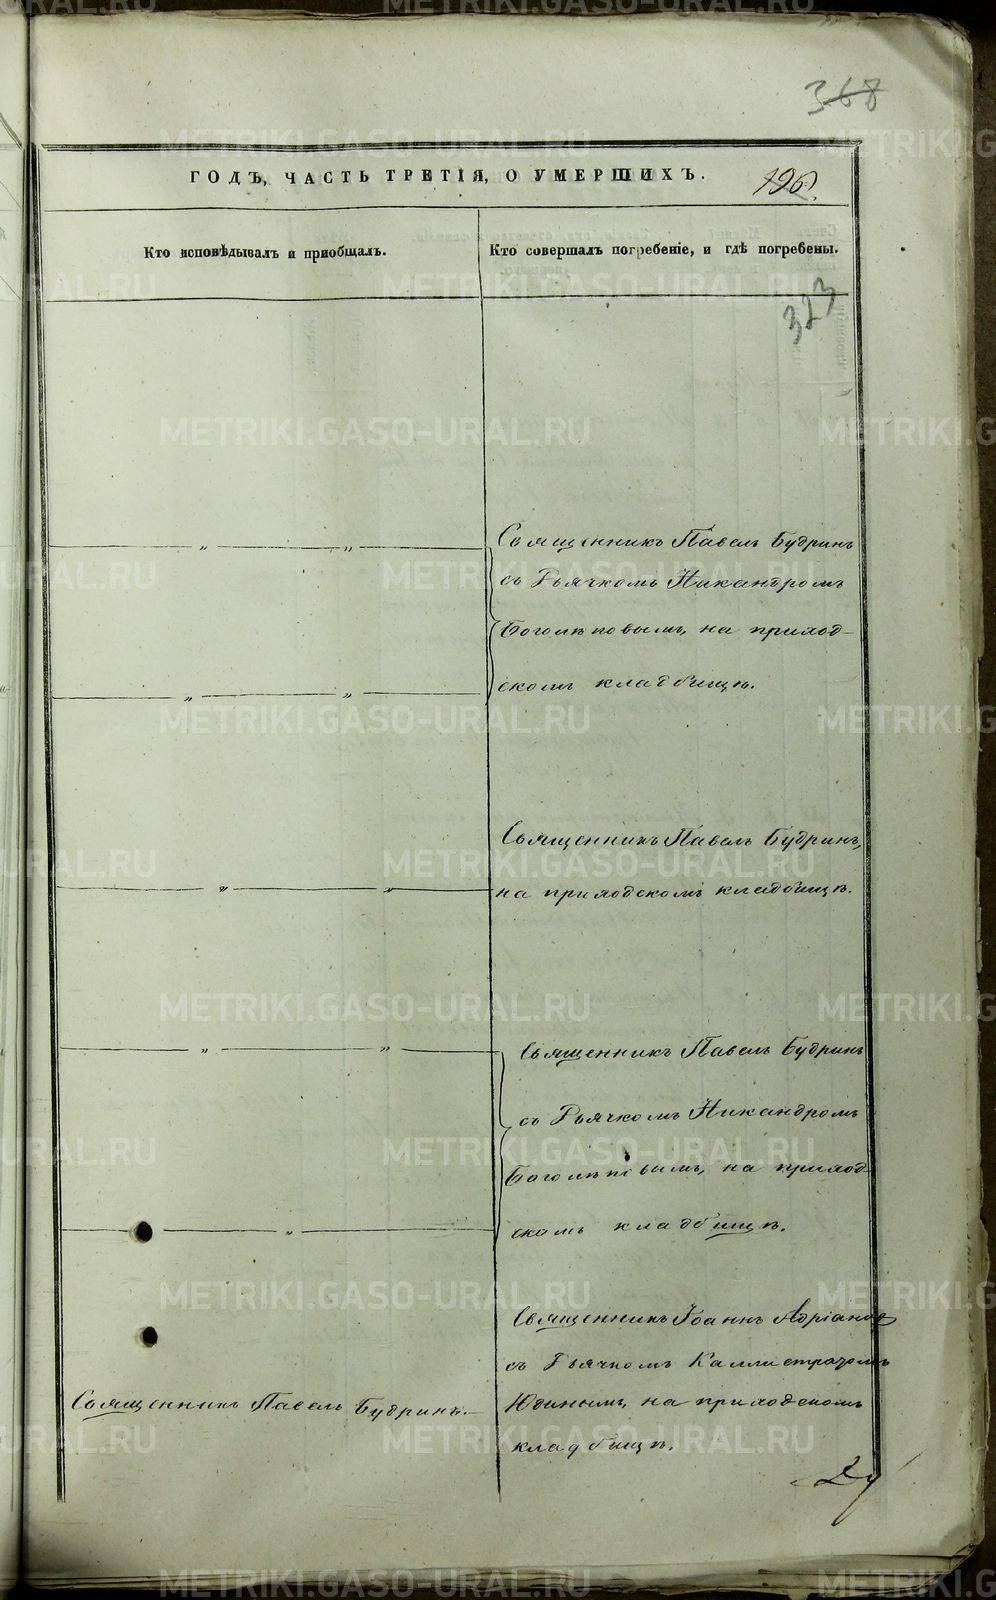 368
ГОДЪ, ЧАСТЬ ТРЕТІЯ, О УМЕРШИХЪ.
196.
Кто исповѣдывалъ и пріобщалъ.
Кто совершалъ погребеніе, и гдѣ погребены.
323
Священникъ Павелъ Будринъ
съ Дьячкомъ Никандромъ
Боголѣповымъ, на приход-
скомъ кладбищѣ.
Священникъ Павелъ Будринъ,
на приходскомъ кладбищѣ.
Священникъ Павелъ Будринъ
съ Дьячкомъ Никандромъ
Боголѣповымъ, на приход-
скомъ кладбищѣ.
Священникъ Іоаннъ Адріановъ
съ Дьячкомъ Каллистратомъ
Юдинымъ, на приходскомъ
кладбищѣ.
Священникъ Павелъ Будринъ.
METRIKI.GASO-URAL.RU